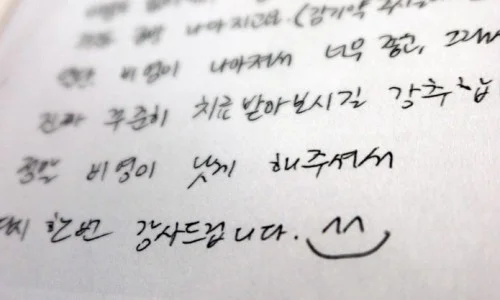 나아지고요. (감기약
비염이 나아져서 너무 좋고, 그래서
진짜 꾸준히 치료 받아보시길 강추합
정말 비염이 낫게 해주셔서
다시 한번 감사드립니다. ^^